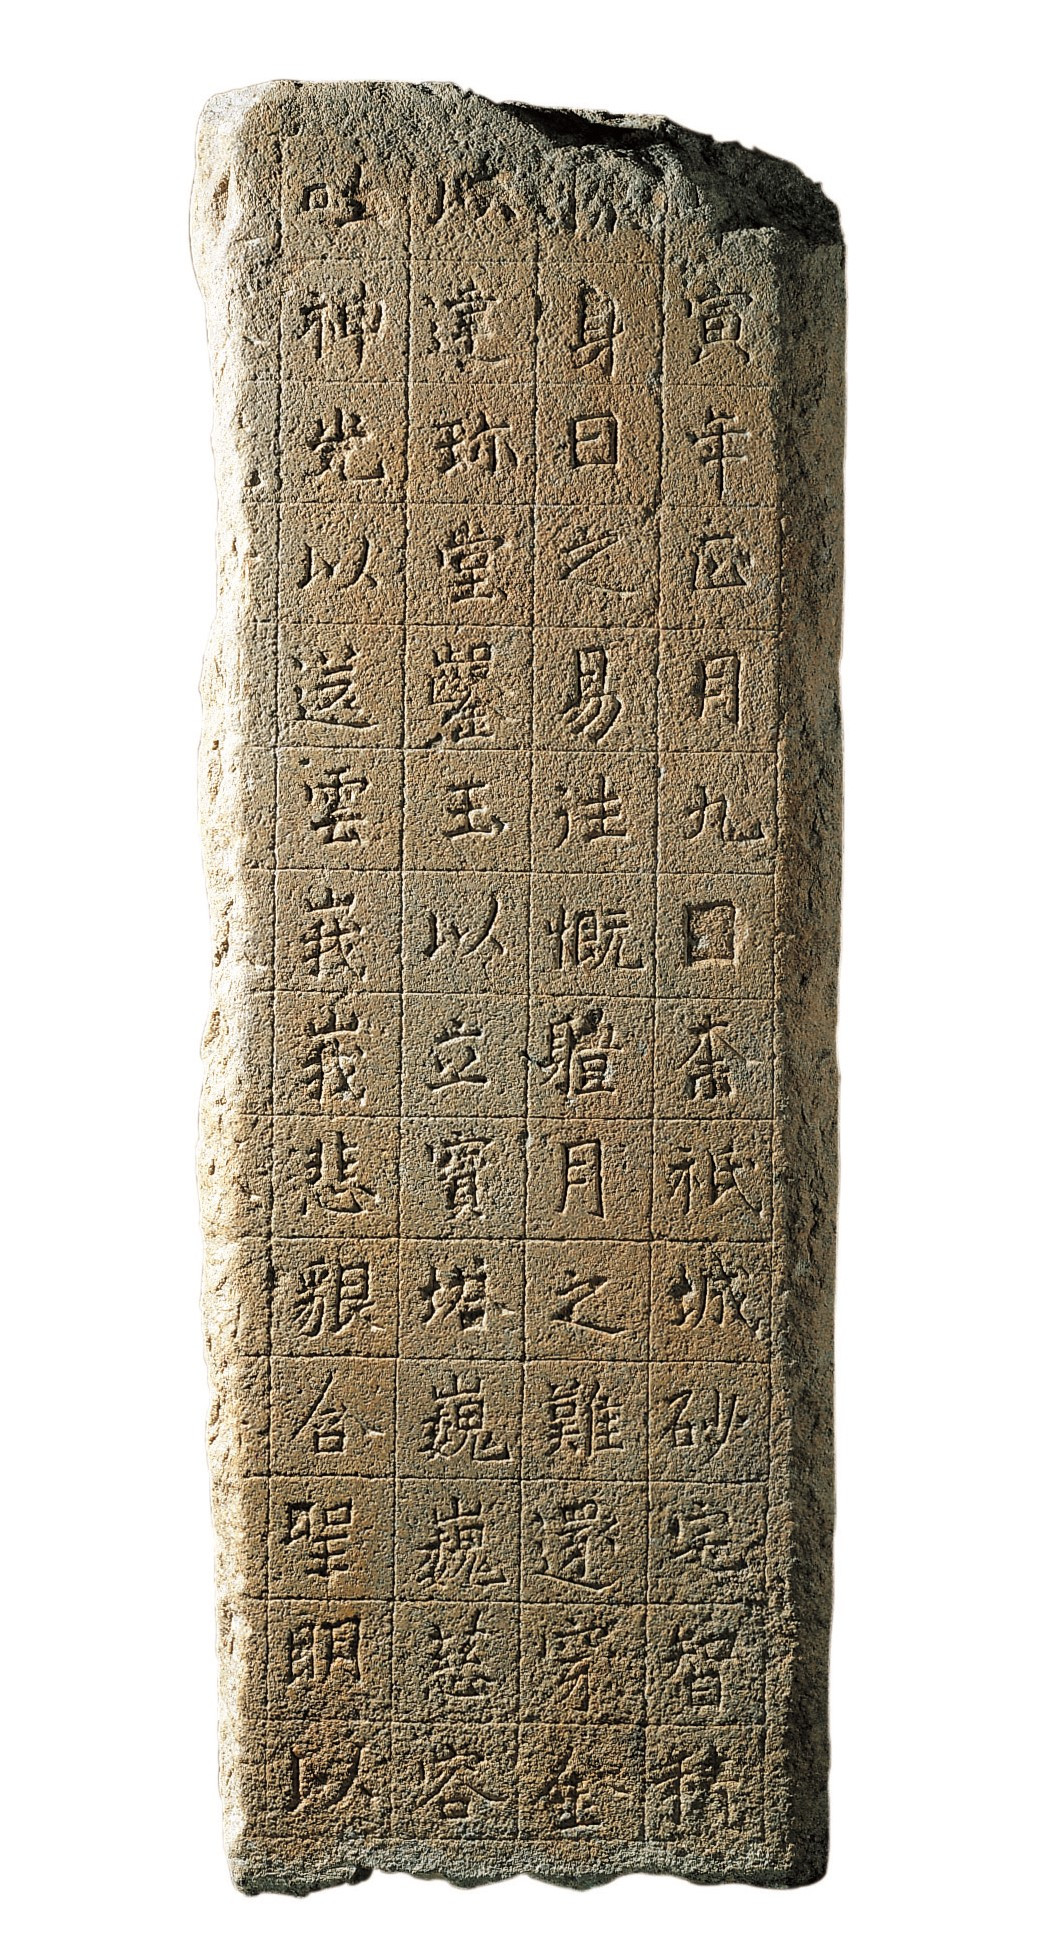 寅年正月九日奈祇城砂宅智積
慷身日之易往慨軆月之難還穿金
以建珍堂鑿玉以立寶塔巍巍慈容
吐神光以送雲峩峩悲貇含聖明以